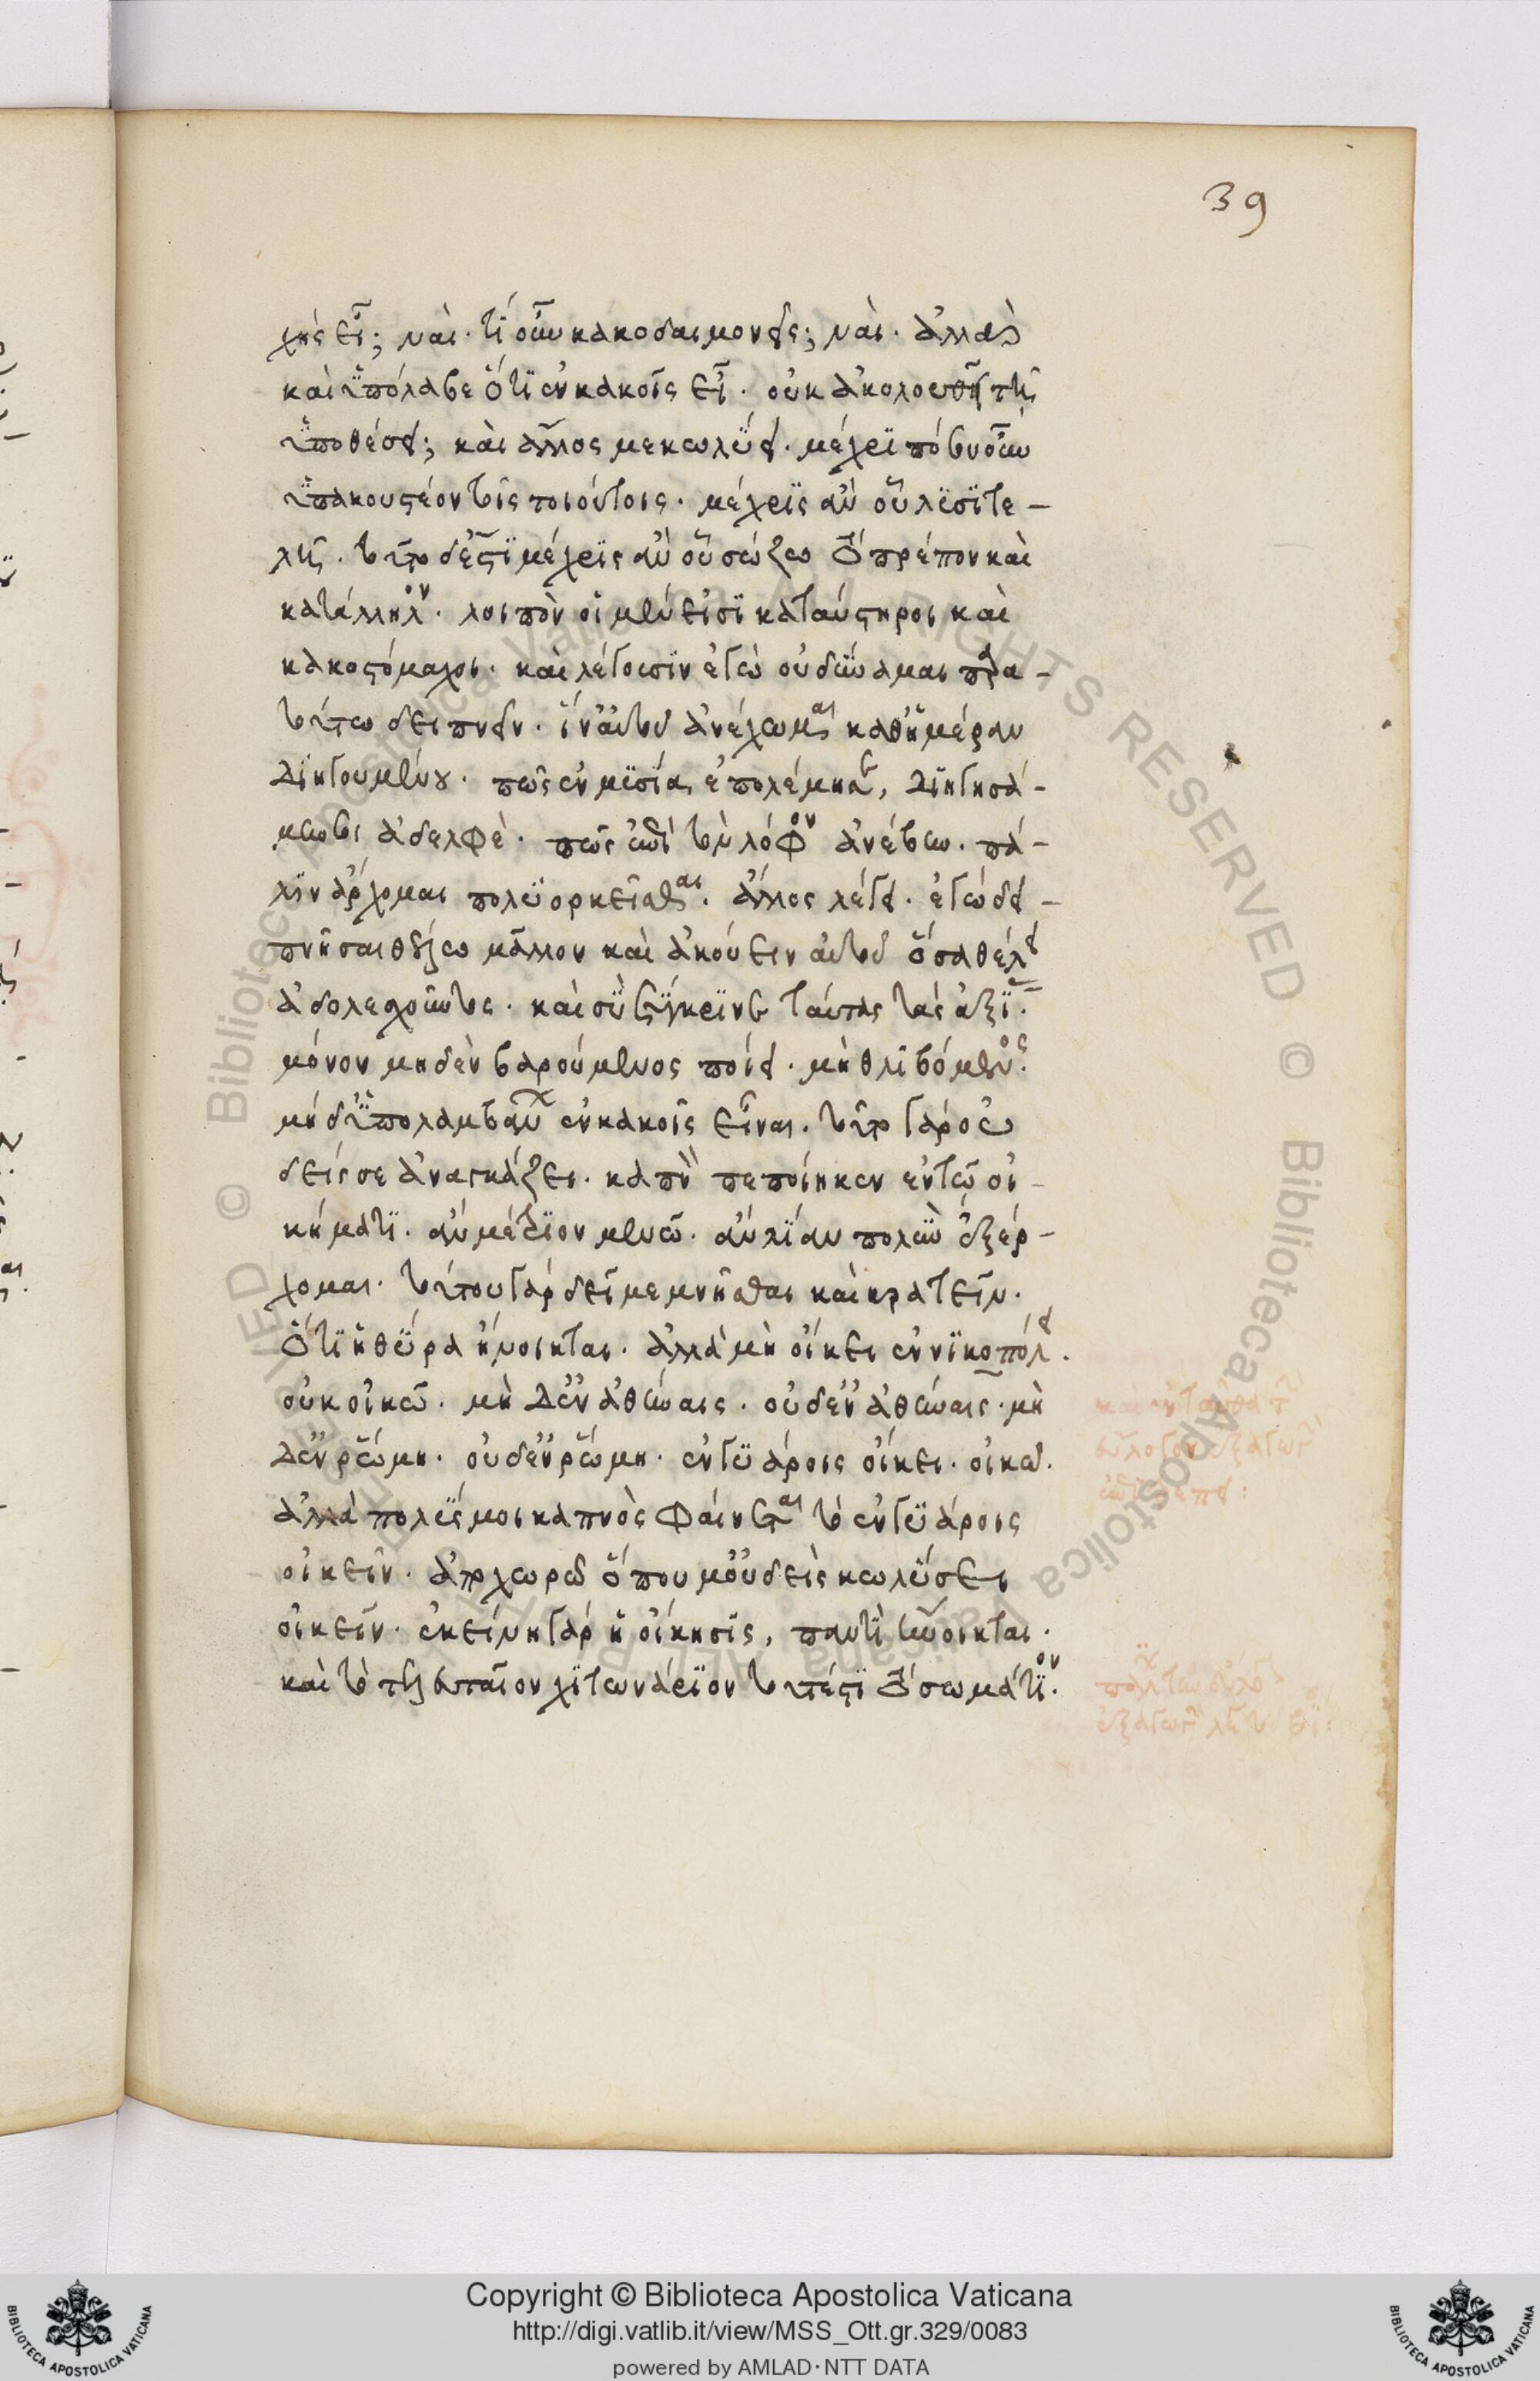 39
χὴς εἶ; ναί· τί οὖν κακοδαιμονεῖς; ναί· ἀλλὰ
καὶ ὑπόλαβε ὅτι ἐν κακοῖς εἶ· οὐκ ἀκολουθεῖ τῇ
ὑποθέσει; καὶ ἄλλος με κωλύει· μέχρι πόσου οὖν
ὑπακουστέον τοῖς τοιούτοις· μέχρις ἂν οὗ λυσιτε-
λῇ· τοῦτο δέστι μέχρις ἂν οὗ σώζω τὸ πρέπον καὶ
κατάλληλον· λοιπὸν οἱ μὲν εἰσὶ κατάυστηροι καὶ
κακοστόμαχοι· καὶ λέγουσιν ἐγὼ οὐ δύναμαι παρα-
τούτω δειπνεῖν· ἵν' αὐτοῦ ἀνέχωμαι καθημέραν
διηγουμένου· πῶς ἐν μυσία ἐπολέμησεν, διηγησά-
μην σοι ἀδελφὲ· πῶς ἐπὶ τὸν λόφον ἀνέβην· πά-
λιν ἄρχομαι πολιορκεῖσθαι· ἄλλος λέγει· ἐγὼ δει-
πνῆσαι θέλω μᾶλλον καὶ ἀκούειν αὐτοῦ ὅσα θέλει
ἀδολεσχοῦντος· καὶ σὺ σύγκρινε ταύτας τὰς ἀξίας·
μόνον μηδὲν βαρούμενος ποίει· μὴ θλιβόμενος·
μηδ' ὑπολαμβάνων ἐν κακοῖς εἶναι· τοῦτο γὰρ οὐ
δείς σε ἀναγκάζει· καπνὸν πεποίηκεν ἐν τῷ οἰ-
κήματι· ἂν μέτριον μενῶ· ἂν λίαν πολὺν ἐξέρ-
χομαι· τούτου γὰρ δεῖ μεμνῆσθαι καὶ κρατεῖν·
ὅτι ἡ θύρα ἤνοικται· ἀλλὰ μὴ οἴκει ἐν νικοπόλει·
οὐκ οἰκῶ· μὴ δ' ἐν ἀθήναις· οὐδ' ἐν ἀθήναις· μὴ
δ' ἐν ῥώμη· οὐδ' ἐν ῥώμη· ἐν γυάροις οἴκει· οἰκῶ·
ἀλλὰ πολύς μοι καπνὸς φαίνεται τὸ ἐν γυάροις
οἰκεῖν· ἀποχωρῶ ὅπου μ' οὐδεὶς κωλύσει
οἰκεῖν· ἐκείνη γὰρ ἡ οἴκησις, παντὶ ἤνοικται·
καὶ τὸ τελευταῖον χιτωνάριον τουτέστι τὸ σωμάτιον·
Copyright © Biblioteca Apostolica Vaticana
http://digi.vatlib.it/view/MSS_Ott.gr.329/0083
powered by AMLAD·NTT DATA